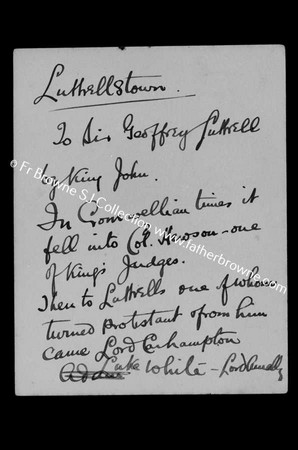 Luttrellstown.
To Sir Geoffrey Luttrell
by King John.
In Cromwellian times it
fell into Col. Hewson - one
of Kings Judges.
Then to Luttrells one of whom
turned protestant & from him
came Lord Carhampton
Luke White - Lord Annaly
© Fr Browne S.J. Collection www.fatherbrowne.com